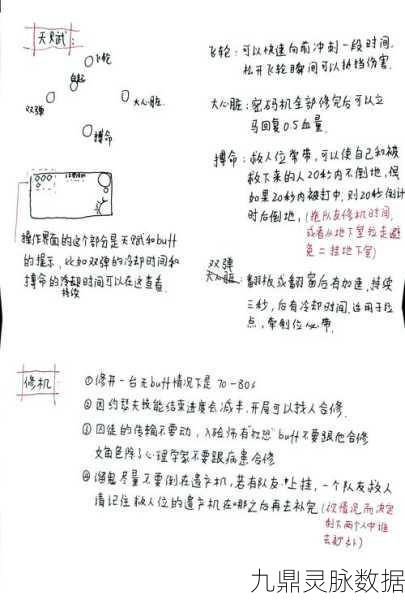 天赋:
飞轮
自起
双弹
大心脏
搏命
操作界面的这个部分是天赋和buff
的提示,比如双弹的冷却时间和
搏命的持续时间可以在这查看.
飞轮:可以快速向前冲刺一段时间,
松开飞轮瞬间可以抵挡伤害.
大心脏:密码机全部修完后可以立
马回复0.5血量.
搏命:救人位常带,可以使自己和被
救下来的人20秒内不倒地,但
如果20秒内被打中,则20秒倒计
时后倒地,(拖队友修机时间,
或者从地下室拉走避
免二挂地下室)
双弹
大心脏:翻板或翻窗后有加速,持续
三秒,后有冷却时间.适用于拉
点,牵制位必带.
修机:
①修开一台无buff情况下是70-80s
②因约瑟夫技能结束进度会减半,开局可以找人合修.
③囚徒的传输不要动,入殓师有"救怨"buff不要跟他合修
女角色除了心理学家不要跟病患合修
④溜鬼尽量不要倒在遗产机,若有队友上挂,一个队友救人
请记住救人位的遗产机在哪之后再去补完(视情况而决定
剩下两个人中谁
去补)
九鼎灵脉数据